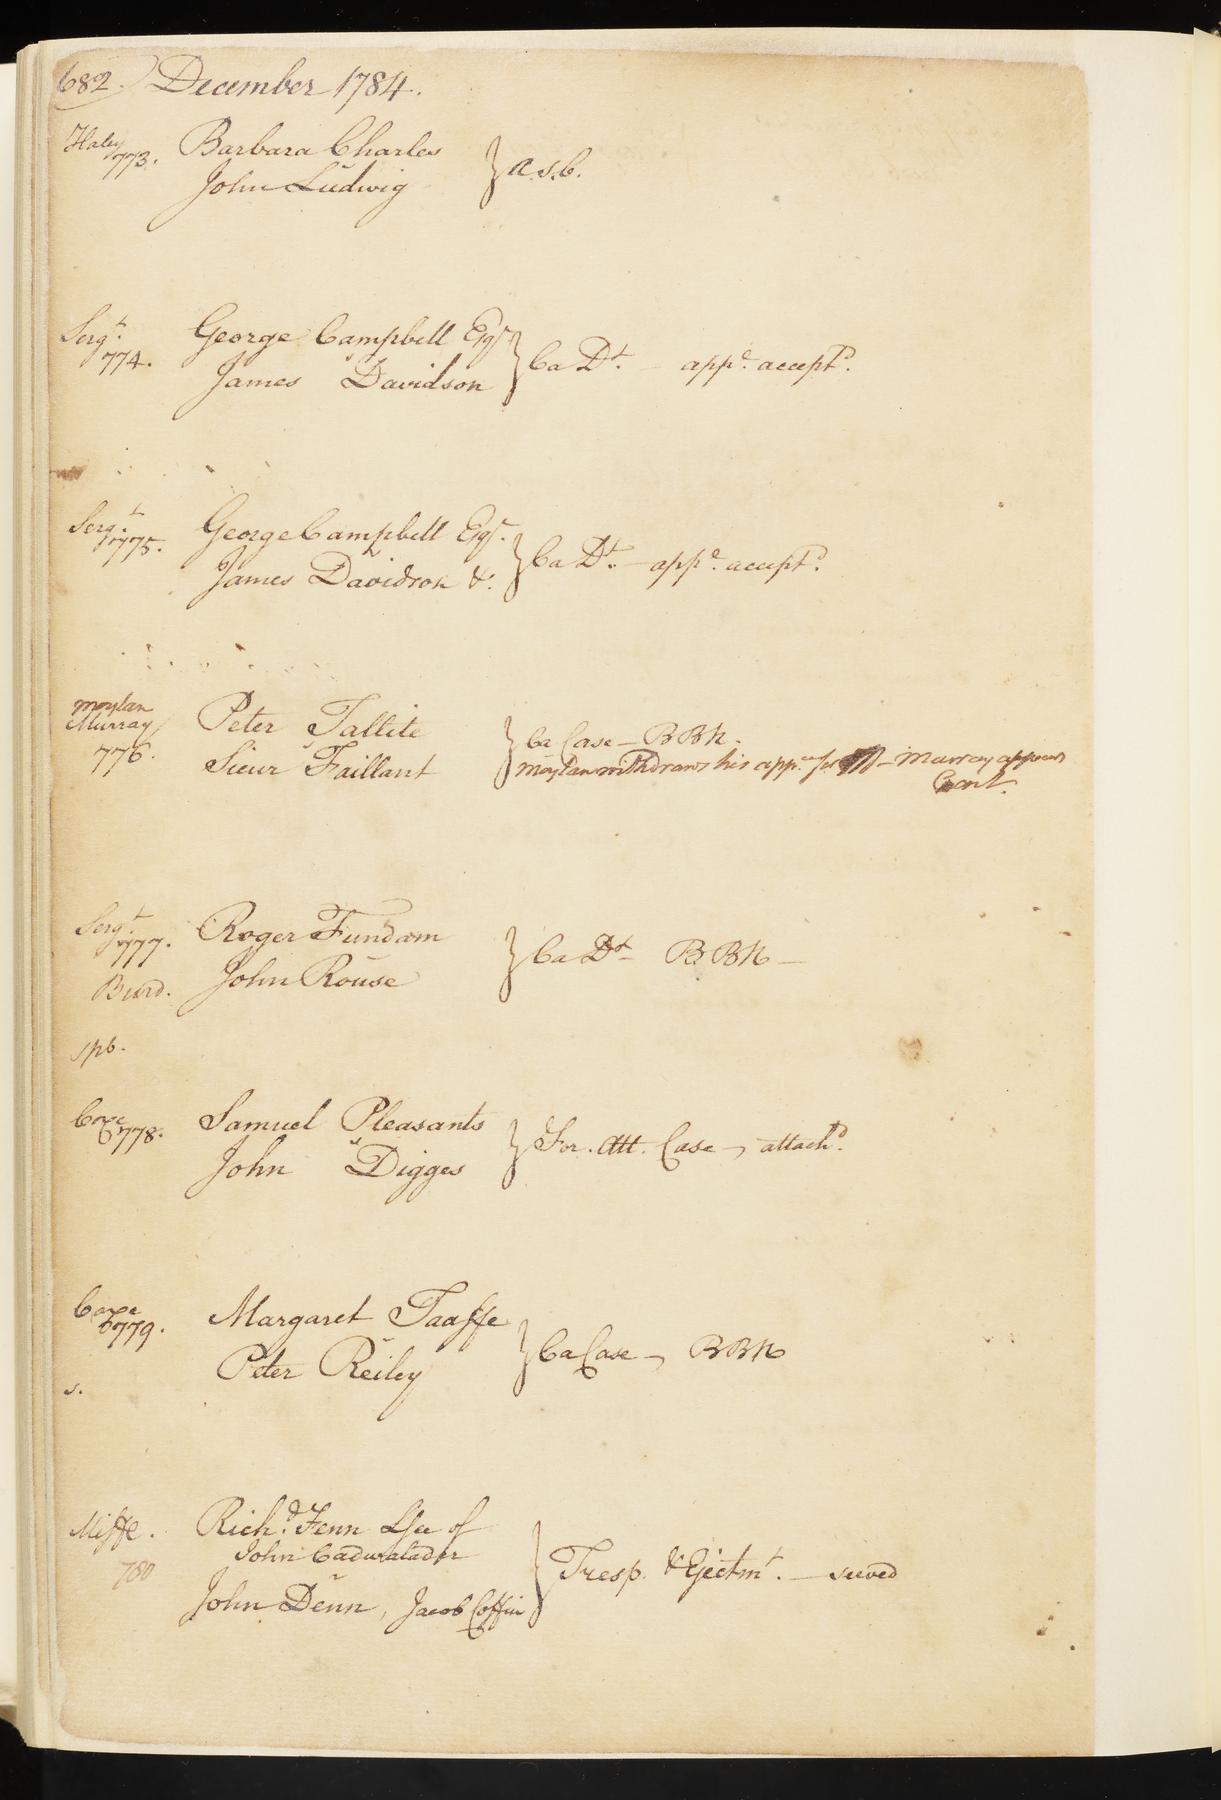 682.) December 1784.
Haley 773. Barbara Charles
v
John Ludwig } a.s.b.
Sergt. 774. George Campbell Esqr
v
James Davidson } Ca Dt. – appe. acceptd.
Sergt. 775. George Campbell Esqr.
v
James Davidson &. } Ca Dt. – appe. acceptd.
Moylan
Murray 776. Peter Tallite
v
Sieur Faillant } Ca Case – BBR.
Moylan withdraws his appce for – Murray appears
Cont.
Sergt. 777. Roger Fundam
v
Burd. John Rouse } Ca Dt – BBR –
spb.
Coxe 778. Samuel Pleasants
v
John Digges } For. Att. Case – attachd.
Coxe 779. Margaret Taaffe
v
Peter Reiley } Ca Case – BBR
s.
Miffe. 780 Richd. Fenn Lsee of
John Cadwalader
v
John Denn, Jacob Coffin } Tresp. & Ejectmt. – served